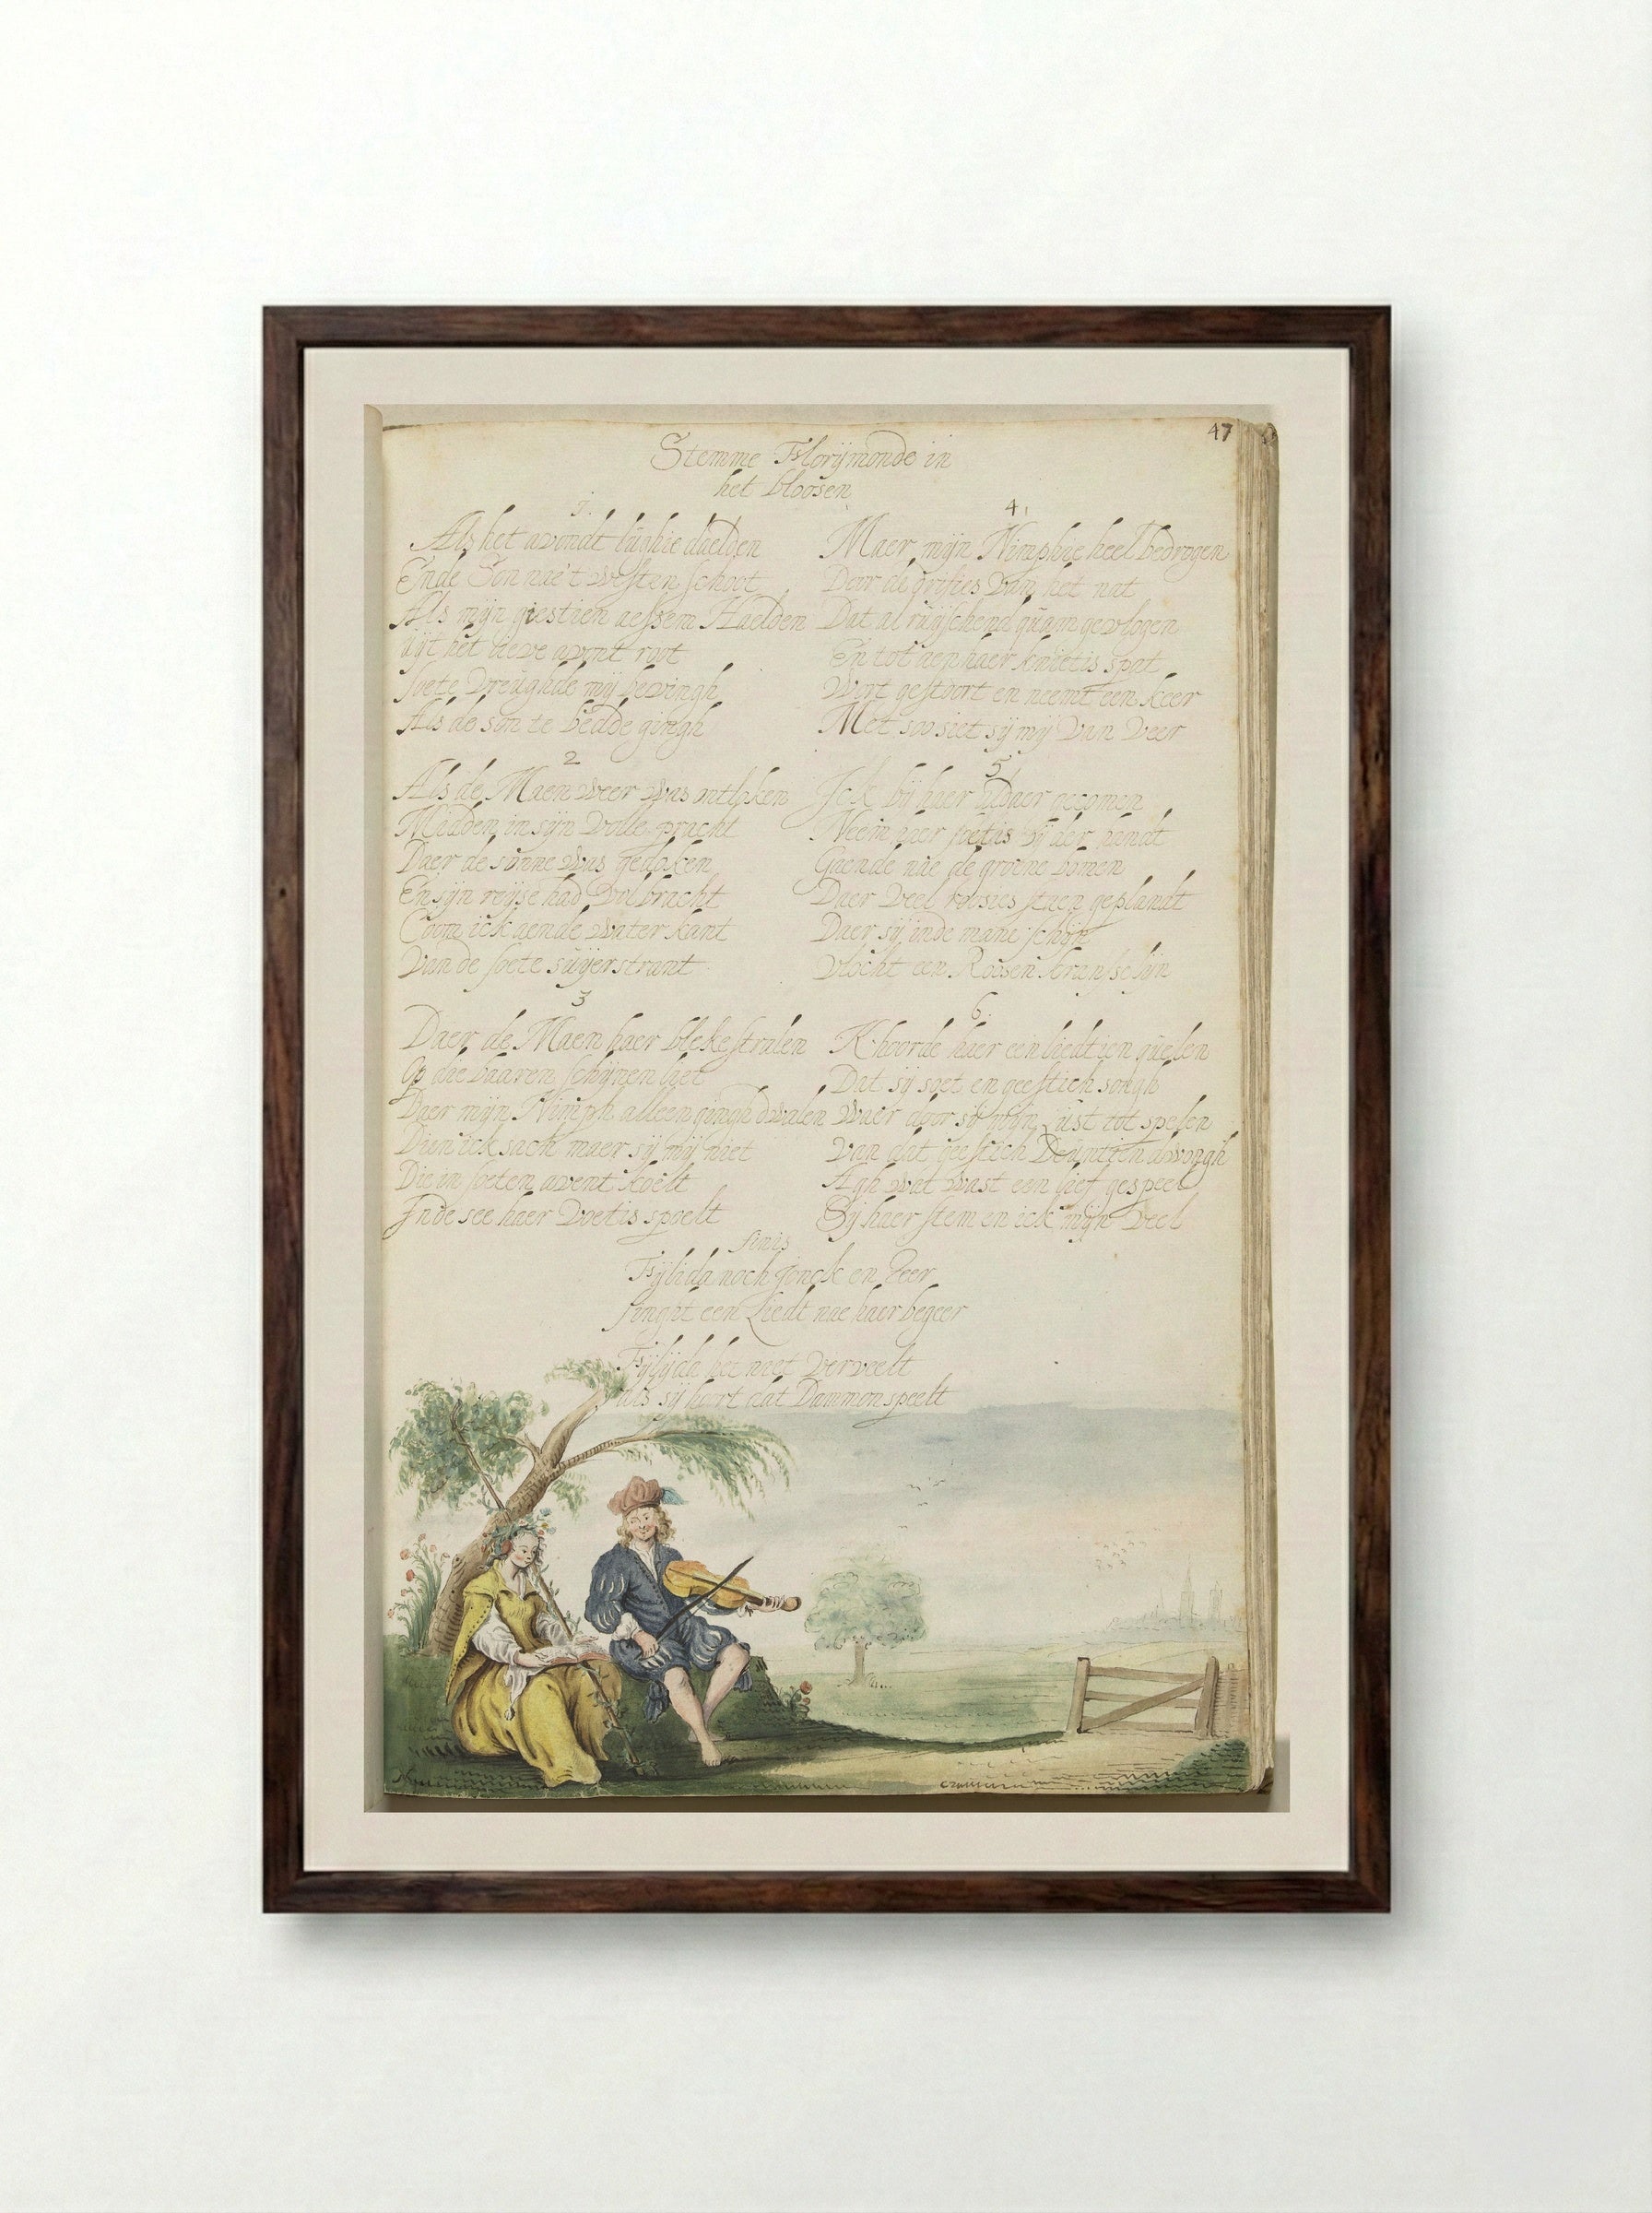 47
Stemme Florijmonde in
het bloosen
1.
Als het avondt lughie daelden
Ende Son nae't westen schoot
Als mijn giestien aessem Haelden
uijt het lieve avont root
soete vreughde mij bevingh
Als de son te bedde gingh
2
Als de Maen weer was ontloken
Midden in sijn volle pracht
Daer de sunne was gedoken
En sijn reijse had volbracht
Coom ick aende water kant
Van de soete suijerstrant
3
Daer de Maen haer bleke stralen
Op die baaren schijnen liet
Daer mijn Nimph alleen gingh dwalen
Dien ick sach maer sij mij niet
Die in soeten avent koelt
Inde see haer voetis spoelt
4.
Maer mijn Nimphie heel bedrogen
Door de grisies van het nat
Dat al ruijschend quam gevlogen
En tot aen haer knietis spat
Wort gestoort en neemt een keer
Met soo siet sij mij van veer
5
Ick bij haer daer gecomen
Neem haer soetis bij der handt
Gaende nae de groene bomen
Daer veel roosies staen geplandt
Daer sij inde mane schijn
vlocht een Roosen kransselijn
6.
K hoorde haer een liedtien quelen
Dat sij soet en geestich songh
Waer door sij mijn lust tot spelen
Van dat geestich Deuntien dwongh
Agh wat wast een lief gespeel
Sij haer stem en ick mijn veel
finis
Fijlida noch Jonck en Teer
singht een Liedt nae haer begeer
Fijlijda het niet verveelt
als sij hoort dat Dammon speelt